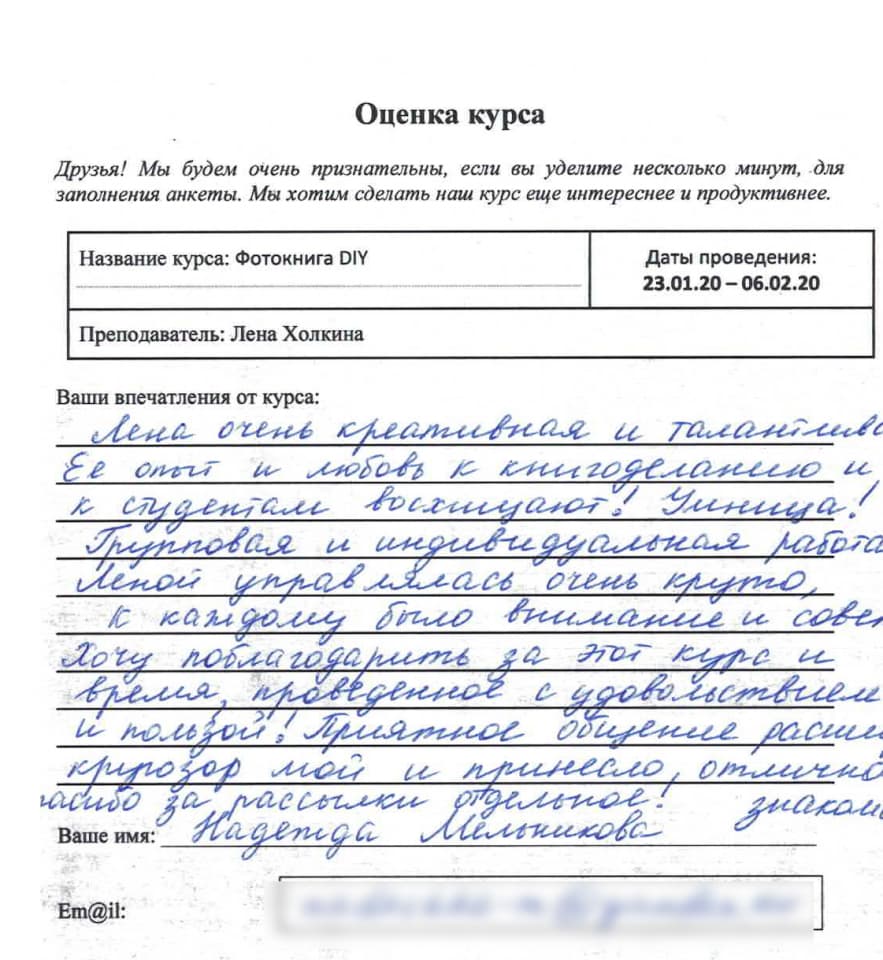 Оценка курса
Друзья! Мы будем очень признательны, если вы уделите несколько минут, для
заполнения анкеты. Мы хотим сделать наш курс еще интереснее и продуктивнее.
Название курса: Фотокнига DIY
Даты проведения:
23.01.20 – 06.02.20
Преподаватель: Лена Холкина
Ваши впечатления от курса:
Лена очень креативная и талантлива
Её опыт и любовь к книгоделанию и
к студентам восхищают! Умница!
Групповая и индивидуальная работа
Леной управлялась очень круто,
К каждому было внимание и сове
Хочу поблагодарить за этот курс и
время, проведенное с удовольствием
и пользой! Приятное общение расши
кригозор мой и принесло, отлично
пасибо за рассылки отдельное! знаком
Ваше имя: Надежда Мельникова
Em@il: